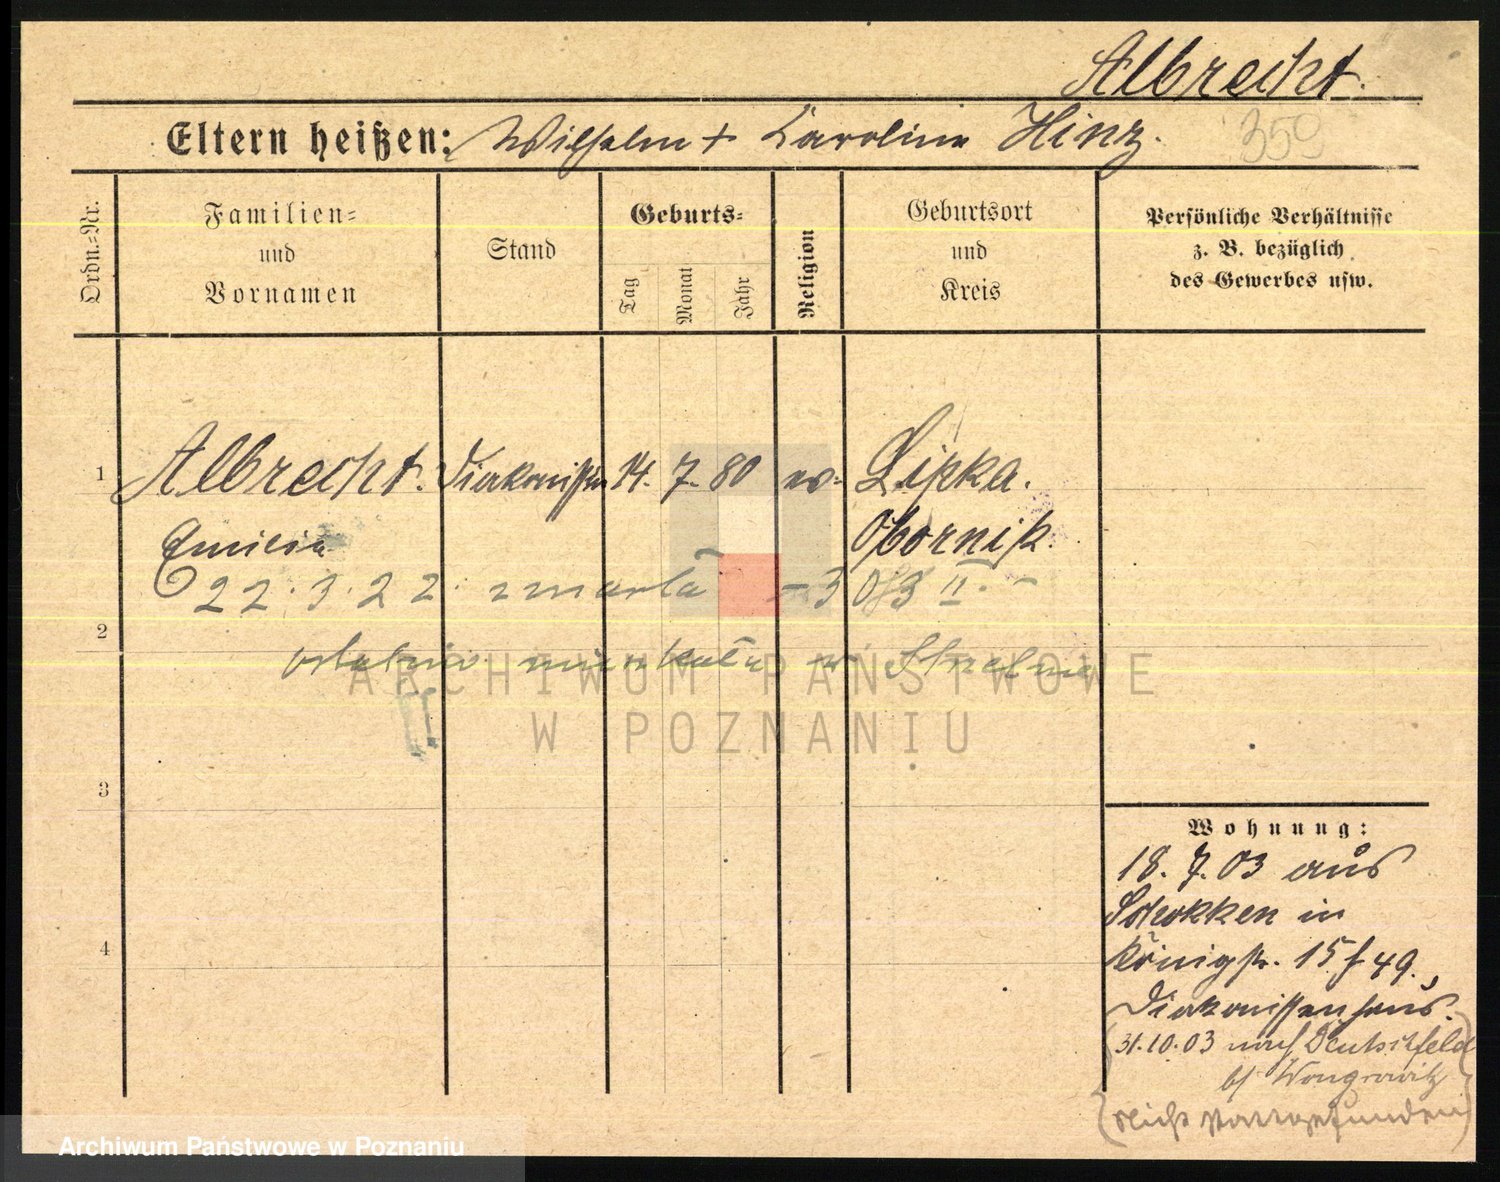 Albrecht.
Eltern heißen: Wilhelm + Karoline Hinz.
Ordn.-Nr.
Familien-
und
Vornamen
Stand
Geburts-
Tag
Monat
Jahr
Religion
Geburtsort
und
Kreis
Persönliche Verhältnisse
z. B. bezüglich
des Gewerbes usw.
1 Albrecht. Diakonissin 14. 7. 80 ev: Lipka.
Emilie Obornik.
22. 3. 22. zmarła
2
ostatnio mieszkała w Strzelnie
ARCHIWUM PAŃSTWOWE
W POZNANIU
3
4
Wohnung:
18. 7. 03 aus
Schokken in
Königstr. 15 f 49.,
Diakonissenhaus.
31.10.03 nach Deutschfeld
b/ Wongrowitz
Archiwum Państwowe w Poznaniu